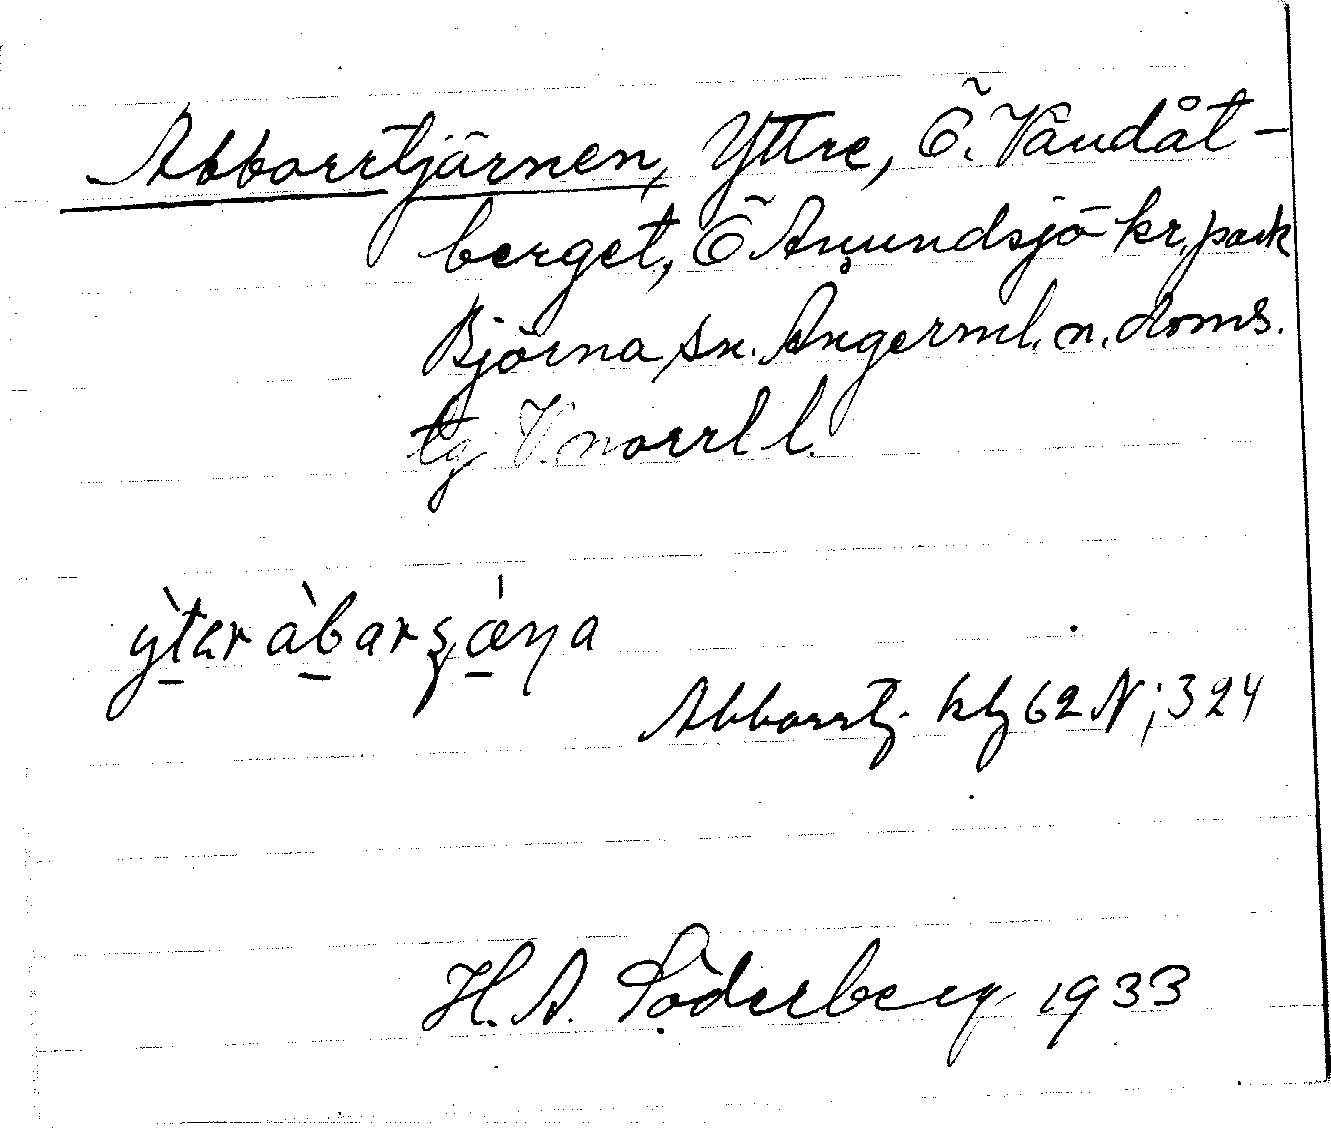 Abborrtjärnen, Yttre, Ö. Vändåt-
berget, Ö Anundsjö kr.park
Björna sn. Ångerml. n. doms.
tg V.norrl l.
ỳter àbarʂǽŋa
Abborrtj. kbl 62 N; 324
H. A. Söderberg 1933